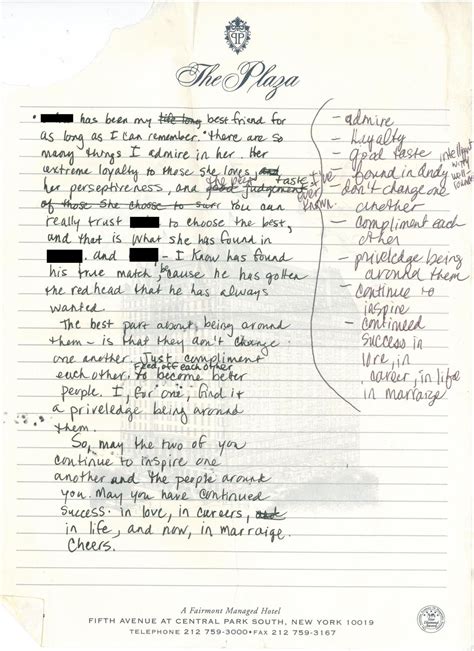 The Plaza
has been my life long best friend for
as long as I can remember. There are so
many things I admire in her. Her
extreme loyalty to those she loves,
her perseptiveness, and the best taste I've ever known.
good judgement
of those She choose to surr You can
really trust to choose the best,
and that is what she has found in
. and - I know has found
his true match, 'cause he has gotten
the red head that he has always
wanted.
The best part about being around
them - is that they don't change
one another. Just compliment
each other. Feed off each other
to become better
people. I, for one, find it
a priveledge being around
them.
So, may the two of you
continue to inspire one
another and the people around
you. May you have continued
success in love, in careers, and
in life, and now, in marraige.
Cheers.
- admire
- Loyalty
- good taste intelligent
with
- found in Andy well
- don't change one
another
- compliment each
other
- priveledge being
around them
- continue to
inspire
- continued
success in
love, in
career, in life
in marraige
A Fairmont Managed Hotel
FIFTH AVENUE AT CENTRAL PARK SOUTH, NEW YORK 10019
TELEPHONE 212 759-3000 • FAX 212 759-3167